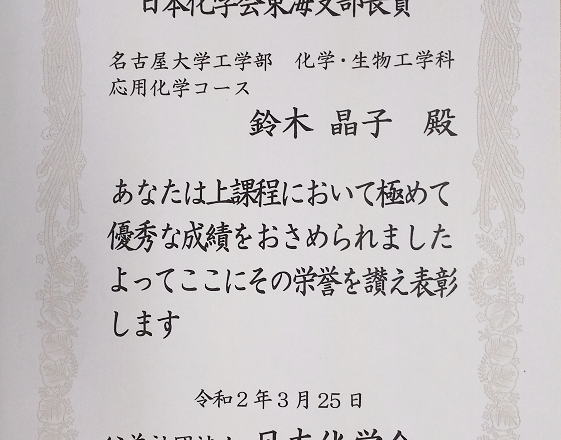 日本化学会東海支部長賞
名古屋大学工学部　化学・生物工学科
応用化学コース
鈴木 晶子　殿
あなたは上課程において極めて
優秀な成績をおさめられました
よってここにその栄誉を讃え表彰
します
令和2年3月25日
公益社団法人 日本化学会